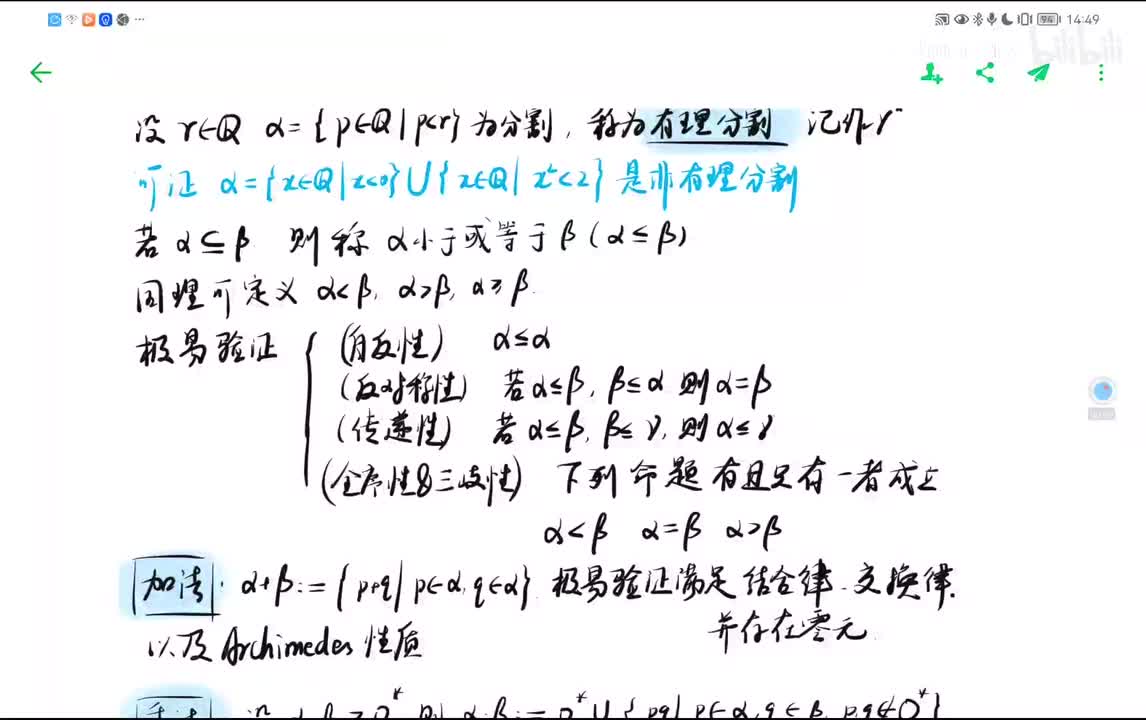 14:49
bilibili
设 r∈Q α={p∈Q|p<r}为分割，称为有理分割 记作r*
可证 α={x∈Q|x<0}∪{x∈Q|x²<2}是非有理分割
若 α⊆β 则称 α小于或等于β(α≤β)
同理可定义 α<β, α>β, α≥β.
极易验证 (自反性) α≤α
(反对称性) 若α≤β, β≤α 则α=β
(传递性) 若α≤β, β≤γ, 则α≤γ
(全序性&三歧性) 下列命题有且只有一者成立
α<β α=β α>β
加法: α+β:={p+q|p∈α,q∈α} 极易验证满足结合律.交换律.
以及Archimedes性质 并存在零元.
0* 则 α·β:=0*∪{pq|p∈α,q∈β,p,q∉0*}